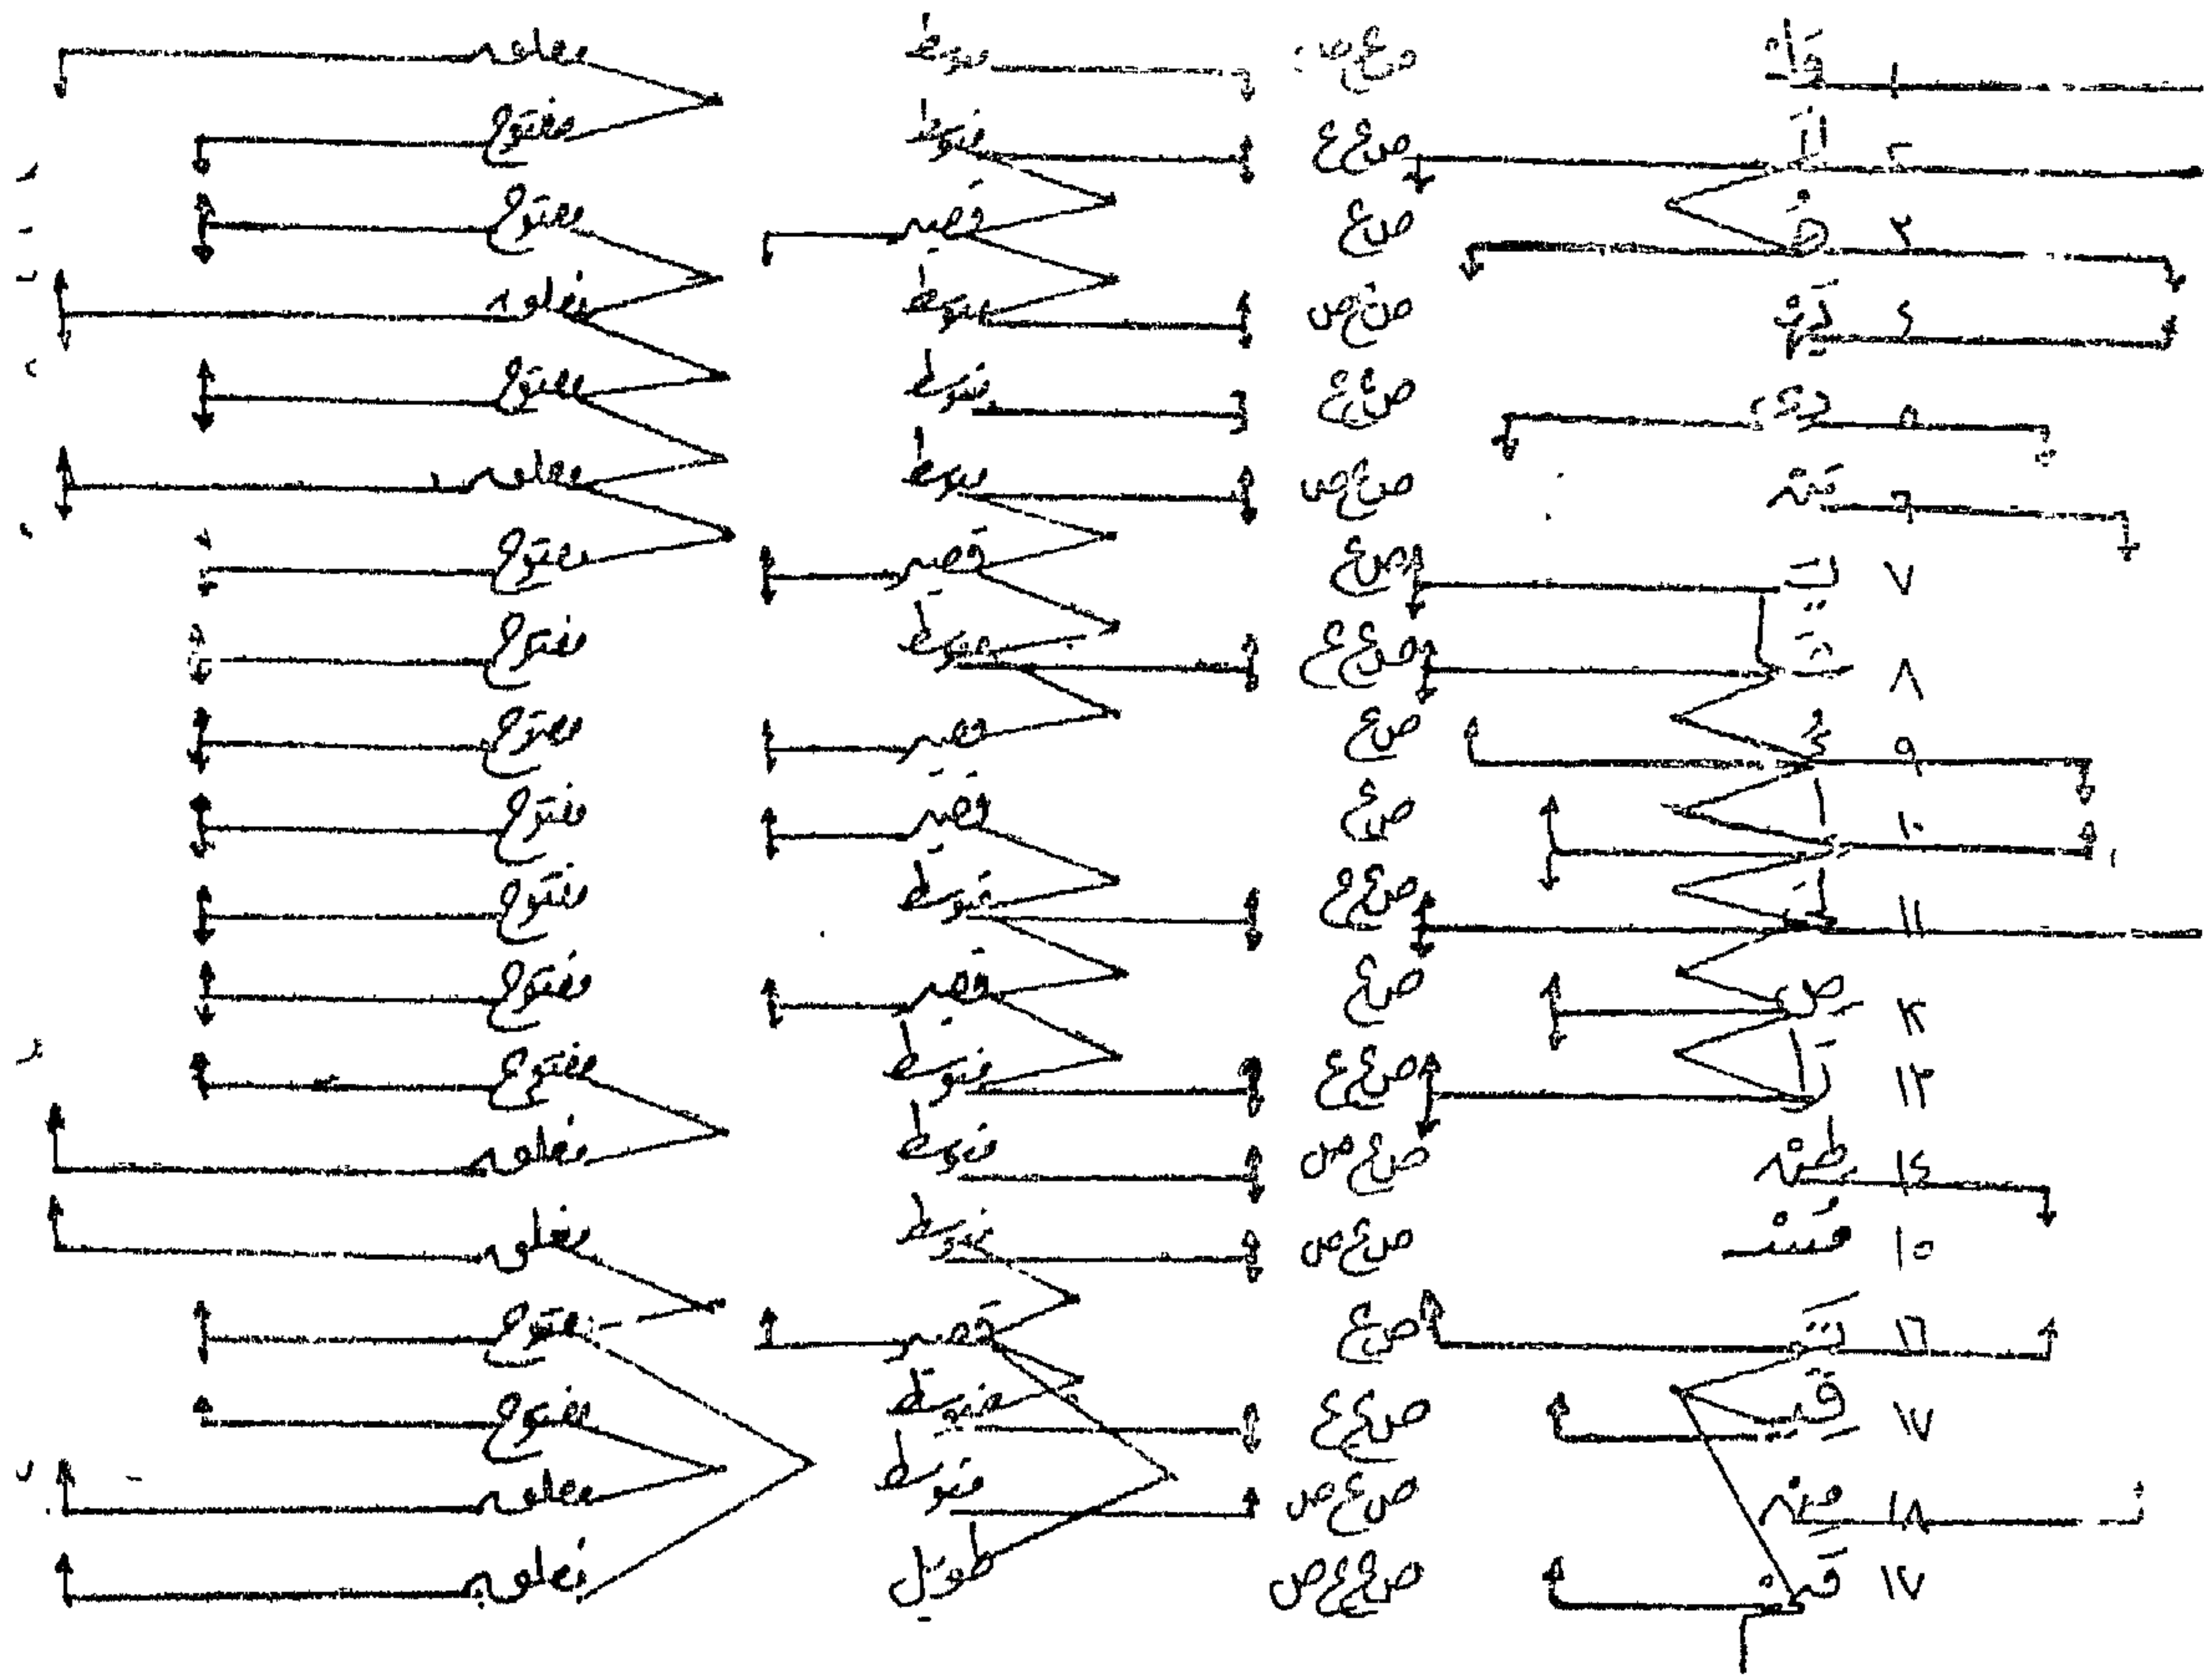 ١ وَاْ ص ع ص متوسط مغلق
٢ لَا ص ع ع متوسط مفتوح
٣ هُ ص ع قصير مفتوح
٤ ص ع ص متوسط مغلق
٥ ص ع ع متوسط مفتوح
٦ مَنْ ص ع ص متوسط مغلق
٧ ص ع قصير مفتوح
٨ ص ع ع متوسط مفتوح
٩ ص ع قصير مفتوح
١٠ ص ع قصير مفتوح
١١ ص ع ع متوسط مفتوح
١٢ صِ ص ع قصير مفتوح
١٣ رَا ص ع ع متوسط مفتوح
١٤ طِنْ ص ع ص متوسط مغلق
١٥ مُسْ ص ع ص متوسط مغلق
١٦ تَ ص ع قصير مفتوح
١٧ قِيـ ص ع ع متوسط مفتوح
١٨ مِنْ ص ع ص متوسط مغلق
١٧ ص ع ع ص طويل مغلق